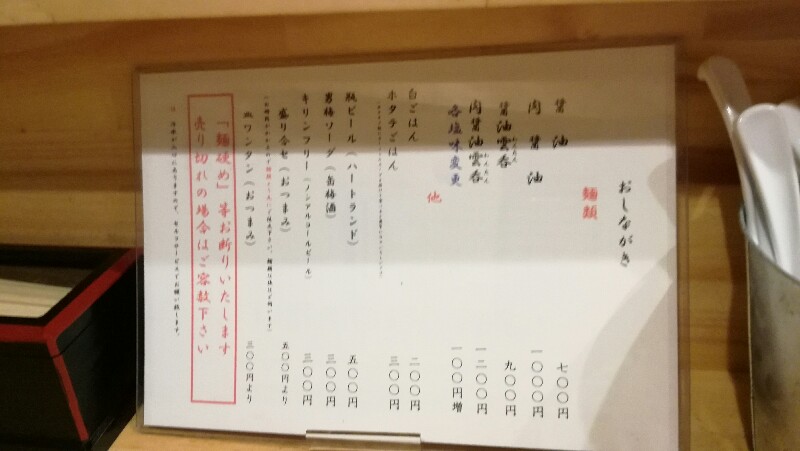 おしながき
麺類
醤油 七〇〇円
肉醤油 一〇〇〇円
醤油雲呑 九〇〇円
わんたん
肉醤油雲呑 一二〇〇円
わんたん
各塩味変更 一〇〇円増
他
白ごはん 二〇〇円
ホタテごはん 三〇〇円
瓶ビール(ハートランド) 五〇〇円
男梅ソーダ(缶梅酒) 三〇〇円
キリンフリー(ノンアルコールビール) 三〇〇円
盛り合せ(おつまみ) 五〇〇円より
皿ワンタン(おつまみ) 三〇〇円より
「麺硬め」等お断りいたします
売り切れの場合はご容赦下さい
セルフサービスでお願い致します。